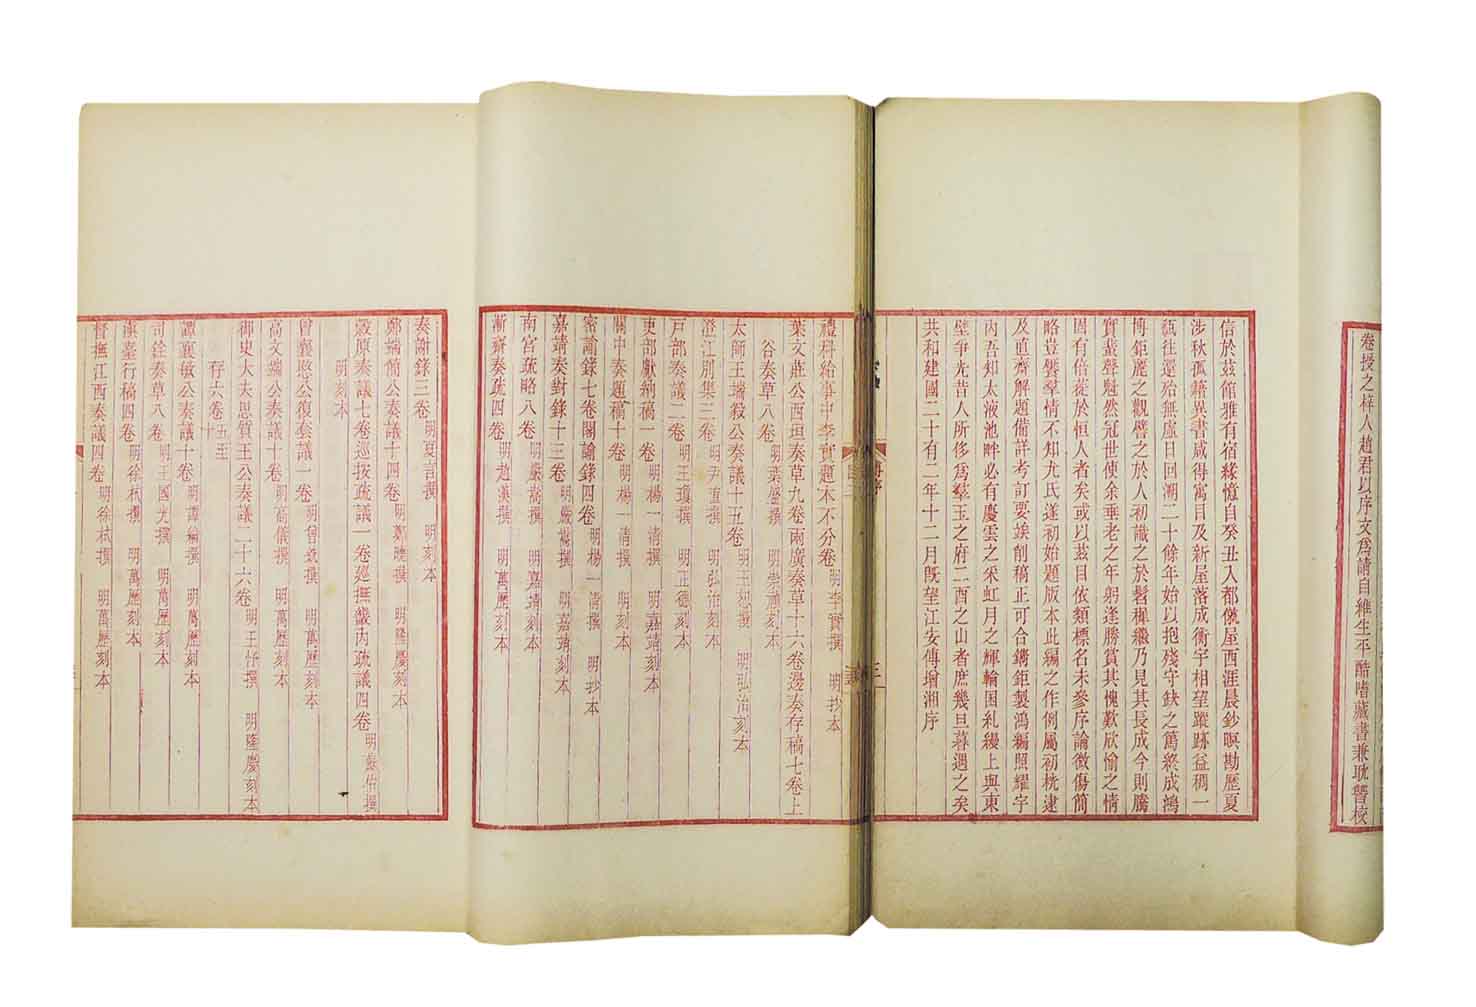 卷授之梓人趙君以序文為請自維生平酷嗜藏書兼耽讐校
信於茲館雅有宿緣憶自癸丑入都僦屋西涯晨鈔暝勘歷夏
涉秋孤籍異書咸得寓目及新屋落成衡宇相望蹤跡益稠一
瓻往還殆無虛日回溯二十餘年始以抱殘守缺之篤終成鴻
博鉅麗之觀譬之於人初識之於髫穉繼乃見其長成今則騰
實蜚聲魁然冠世使余垂老之年躬逢勝賞其愧歎欣愉之情
固有倍蓰於恒人者矣或以茲目依類標名未參序論微傷簡
略豈饜羣情不知尤氏遂初始題版本此編之作例屬初桄逮
及直齋解題備詳考訂要竢削稿正可合鐫鉅製鴻編照耀宇
內吾知太液池畔必有慶雲之采虹月之輝輪囷糺縵上與東
壁爭光昔人所侈為羣玉之府二酉之山者庶幾旦暮遇之矣
共和建國二十有二年十二月既望江安傅增湘序
禮科給事中李實題本不分卷 明李實撰 明抄本
葉文莊公西垣奏草九卷兩廣奏草十六卷邊奏存稿七卷上
谷奏草八卷 明葉盛撰 明崇禎刻本
太師王端毅公奏議十五卷 明王恕撰 明弘治刻本
澄江別集三卷 明尹直撰 明弘治刻本
戶部奏議二卷 明王瓊撰 明正德刻本
吏部獻納稿一卷 明楊一清撰 明嘉靖刻本
關中奏題稿十卷 明楊一清撰 明嘉靖刻本
密諭錄七卷閣諭錄四卷 明楊一清撰 明抄本
嘉靖奏對錄十三卷 明嚴嵩撰 明嘉靖刻本
南宮疏略八卷 明嚴嵩撰 明嘉靖刻本
漸齋奏疏四卷 明趙漢撰 明萬歷刻本
奏謝錄三卷 明夏言撰 明刻本
鄭端簡公奏議十四卷 明鄭曉撰 明隆慶刻本
穀原奏議七卷巡按疏議一卷巡撫畿內疏議四卷 明蘇祐撰
明刻本
曾襄愍公復套議一卷 明曾銑撰 明萬歷刻本
高文端公奏議十卷 明高儀撰 明萬歷刻本
御史大夫思質王公奏議二十六卷 明王忬撰 明隆慶刻本
存六卷 五至十
譚襄敏公奏議十卷 明譚綸撰 明萬歷刻本
司銓奏草八卷 明王國光撰 明萬歷刻本
漢臺行稿四卷 明徐栻撰 明萬歷刻本
督撫江西奏議四卷 明徐栻撰 明萬歷刻本